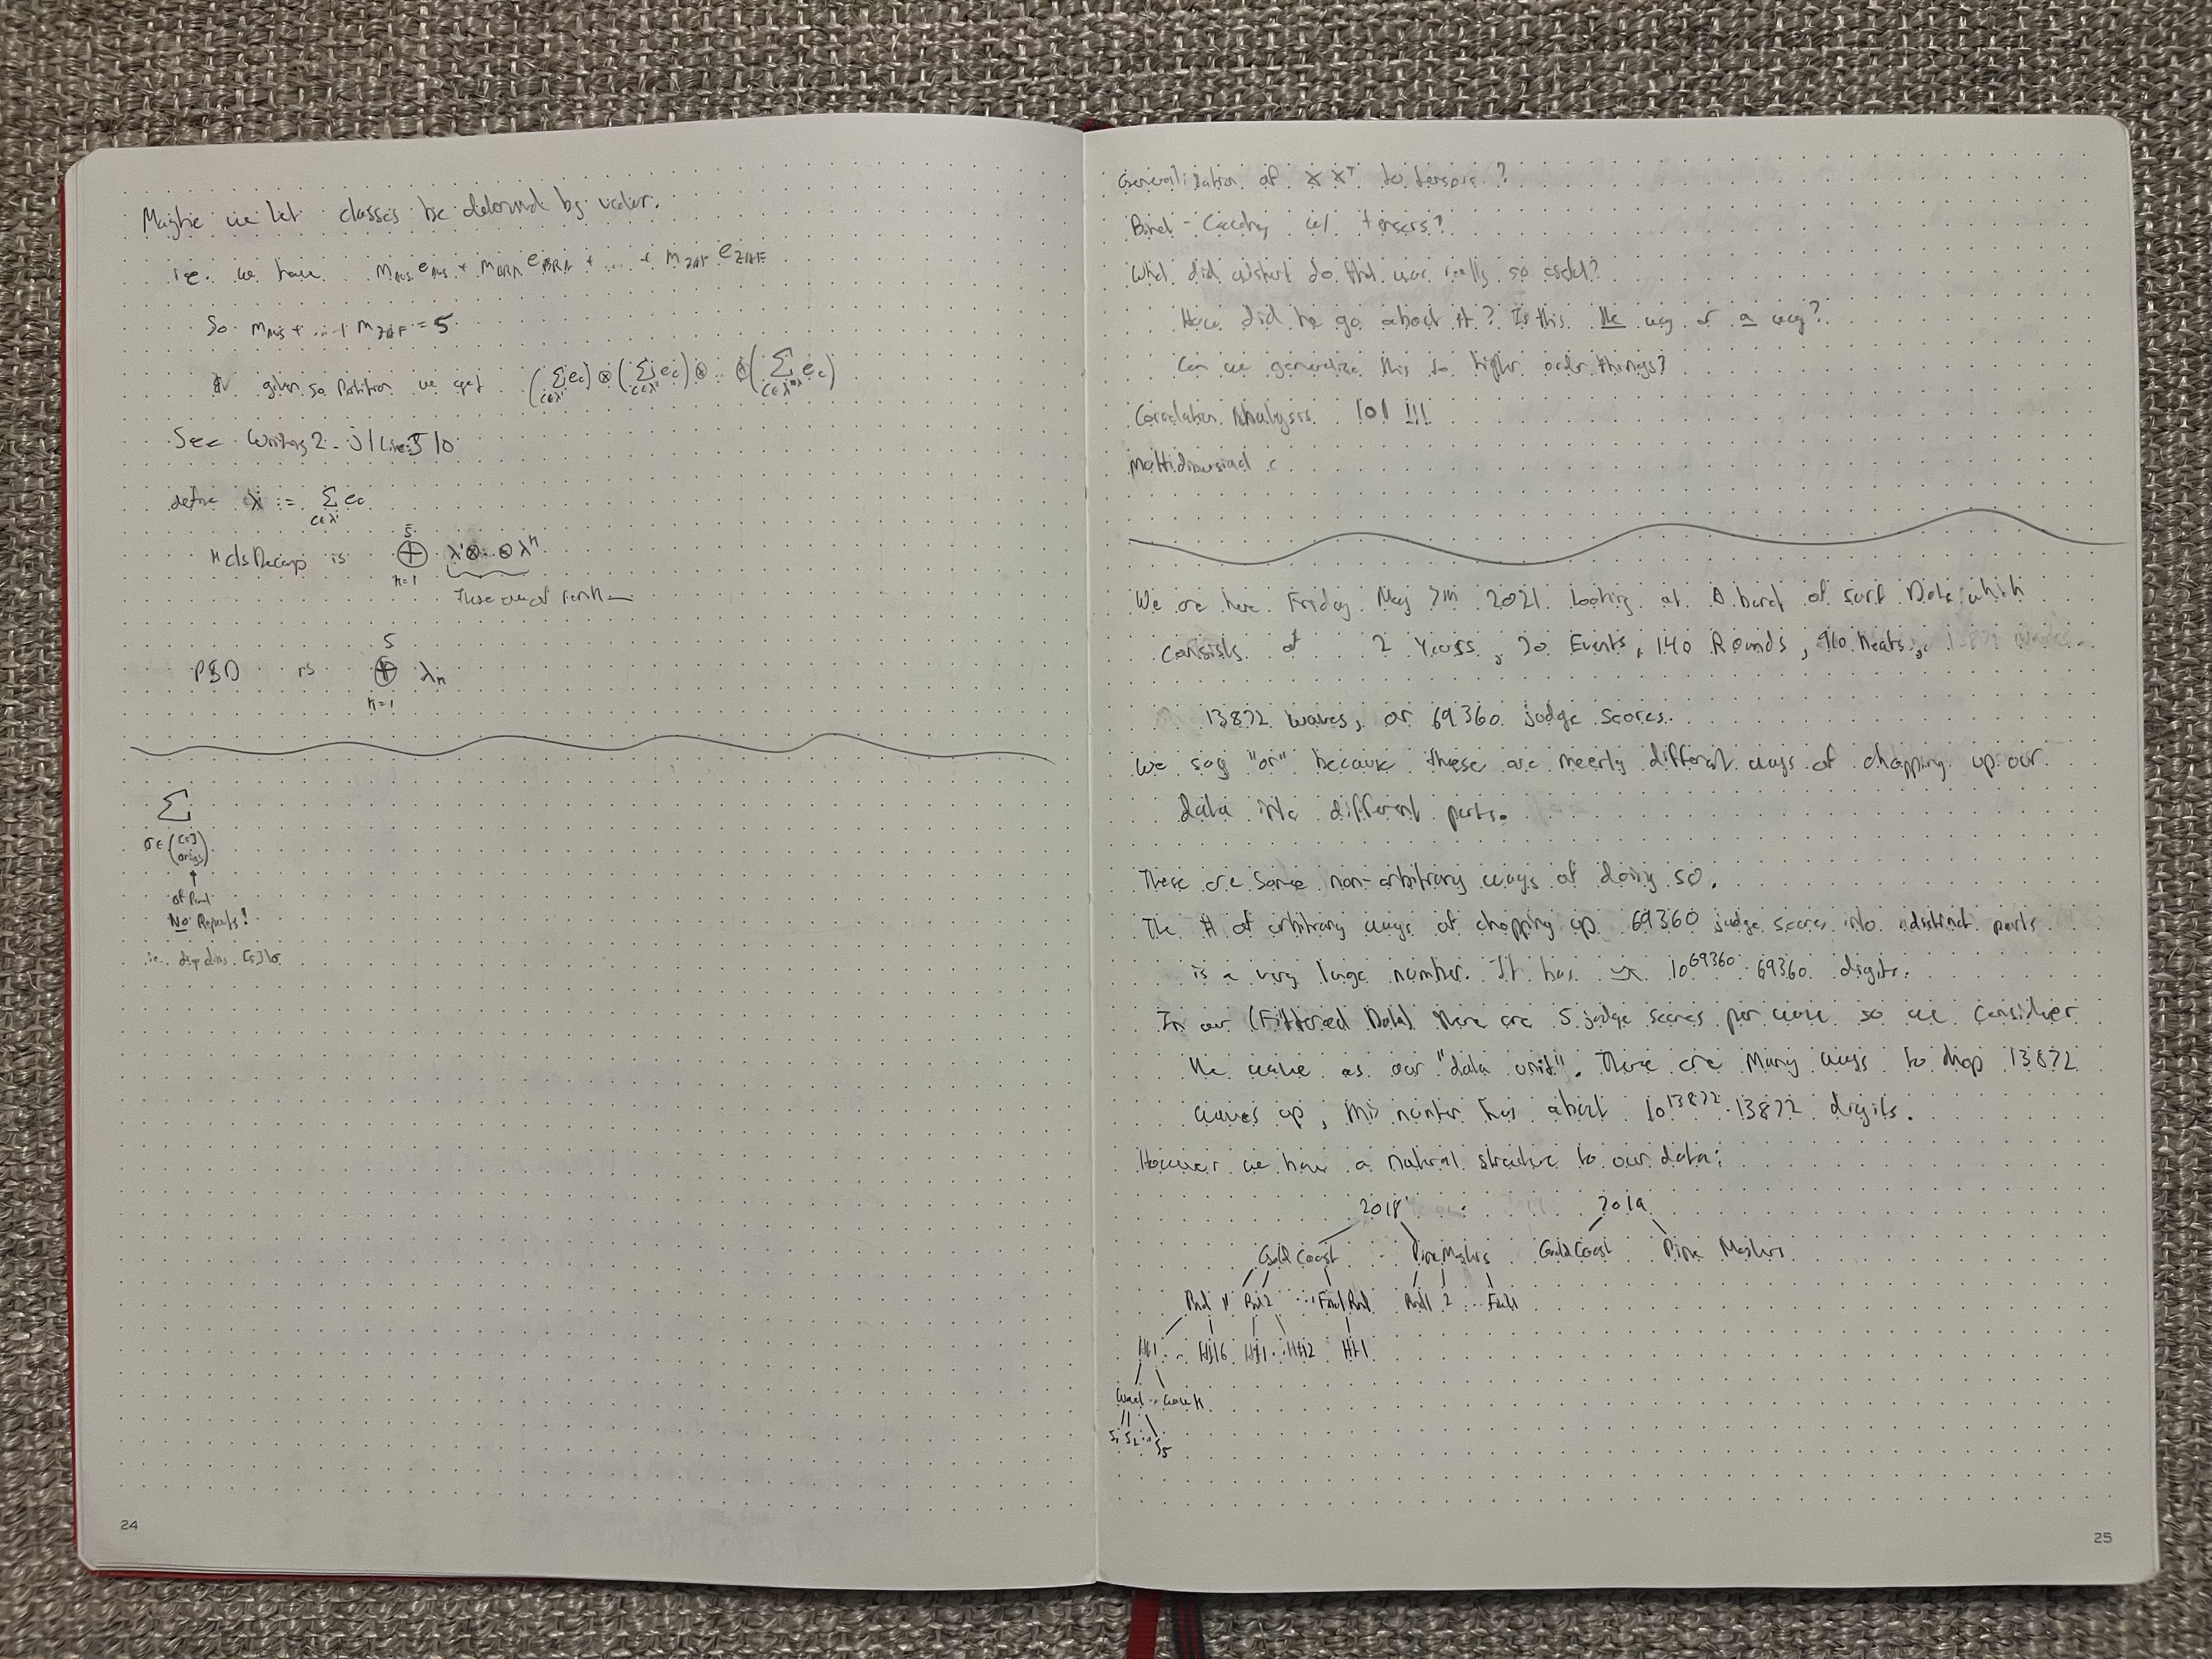 Maybe we let classes be determined by vector.
ie. we have m_AUS e_AUS + m_BRA e_BRA + ... + m_ZAF e_ZAF
So m_AUS + ... + m_ZAF = 5
given so Partition we get (Σ_{c∈λ¹} e_c) ⊗ (Σ_{c∈λ²} e_c) ⊗ .. ⊗ (Σ_{c∈λ} e_c)
See Writing 2 - Line 10
define λⁱ := Σ_{c∈λⁱ} e_c
is ⊕_{n=1}^{5} λ¹⊗..⊗λⁿ
These are of rank
PBD is ⊕_{n=1}^{5} λ_n
Σ
No Repeats!
24
Generalization of XXᵀ to tensors?
w/ tensors?
What did do that was really so useful?
How did he go about it? Is this the way or a way?
Can we generalize this to higher order things?
Correlation Analysis 101 !!!
Multidimensional c
We are here Friday May 7th 2021 looking at A bunch of surf Data which
consists of 2 Years, 20 Events, 140 Rounds, 910 heats,
13872 waves, or 69360 judge scores.
We say "or" because these are merely different ways of chopping up our
data into different parts.
These are some non-arbitrary ways of doing so.
The # of arbitrary ways of chopping up 69360 judge scores into distinct parts
is a very large number. It has 10^69360 69360 digits.
In our (Filtered Data) there are 5 judge scores per wave so we consider
the wave as our "data unit". There are Many ways to chop 13872
waves up, this number has about 10^13872 13872 digits.
However we have a natural structure to our data:
2018 2019
Gold Coast ... Pipe Masters Gold Coast Pipe Masters
Rnd 1 Rnd 2 ... Final Rnd Rnd 1 2 ... Final
Ht1 .. Ht16 Ht1 .. Ht12 Ht1
Wave1 .. Wave n
S₁ S₂ ... S₅
25